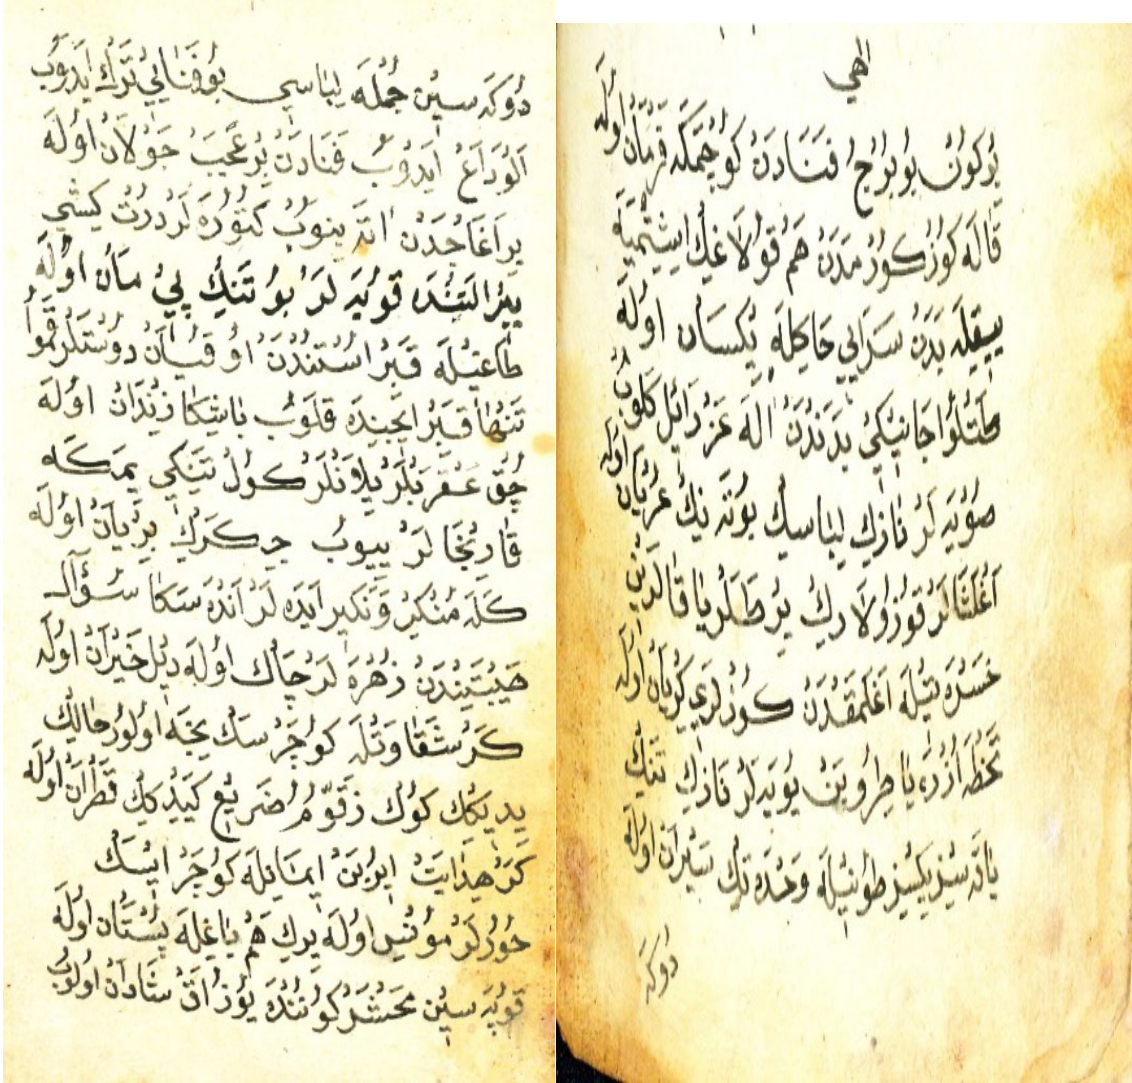 الهي
بركون بو برج فنادن كوچمكه فرمان اوله
قاله كوز كورمدن هم قولاغك ايشتميه
ييقله بدن سرايي خاكله يكسان اوله
طاتلو جانيكي بدندن اله عزرائل كلوب
صويه لر نازك لباسك بو تنك عريان اوله
اغلشالر قوزولارك يرطلر ياقالرين
حسرتيله اغلمقدن كوزلري كريان اوله
تخطه ازره ياطروبن يويه لر نازك تنك
ياته سز يكسز طونيله وحدتك سيران اوله
دوكه
دوكه سين جمله لباسي بو فنايي ترك ايدوب
الوداع ايدوب فنادن بر عجب جولان اوله
بر اغاجدن اته بنوب كتوره لر درت كيشي
ير التنده قويه لر بو تنك بي مان اوله
طاغيله قبر استندن اوقيان دوستلر قمو
تنها قبر ايچنده قلوب باشكا زندان اوله
چق عقربلر يلانلر كول تنكي يمكه
قارنجالر ييوب جكرك بريان اوله
كله منكر و نكير ايده لر انده سكا سؤال
هيبتيندن زهره لر چاك اوله ديل حيران اوله
كر شقاوتله كوچرسك نيجه اولور حالك
يديكك كوك زقوم ضريع كيدكك قطران اوله
كر هدايت ايروبن ايمانله كوچر ايسك
حورلر مونس اوله يرك هم باغله بستان اوله
قويه سين محشر كوننده يوز اق شادان اولوب